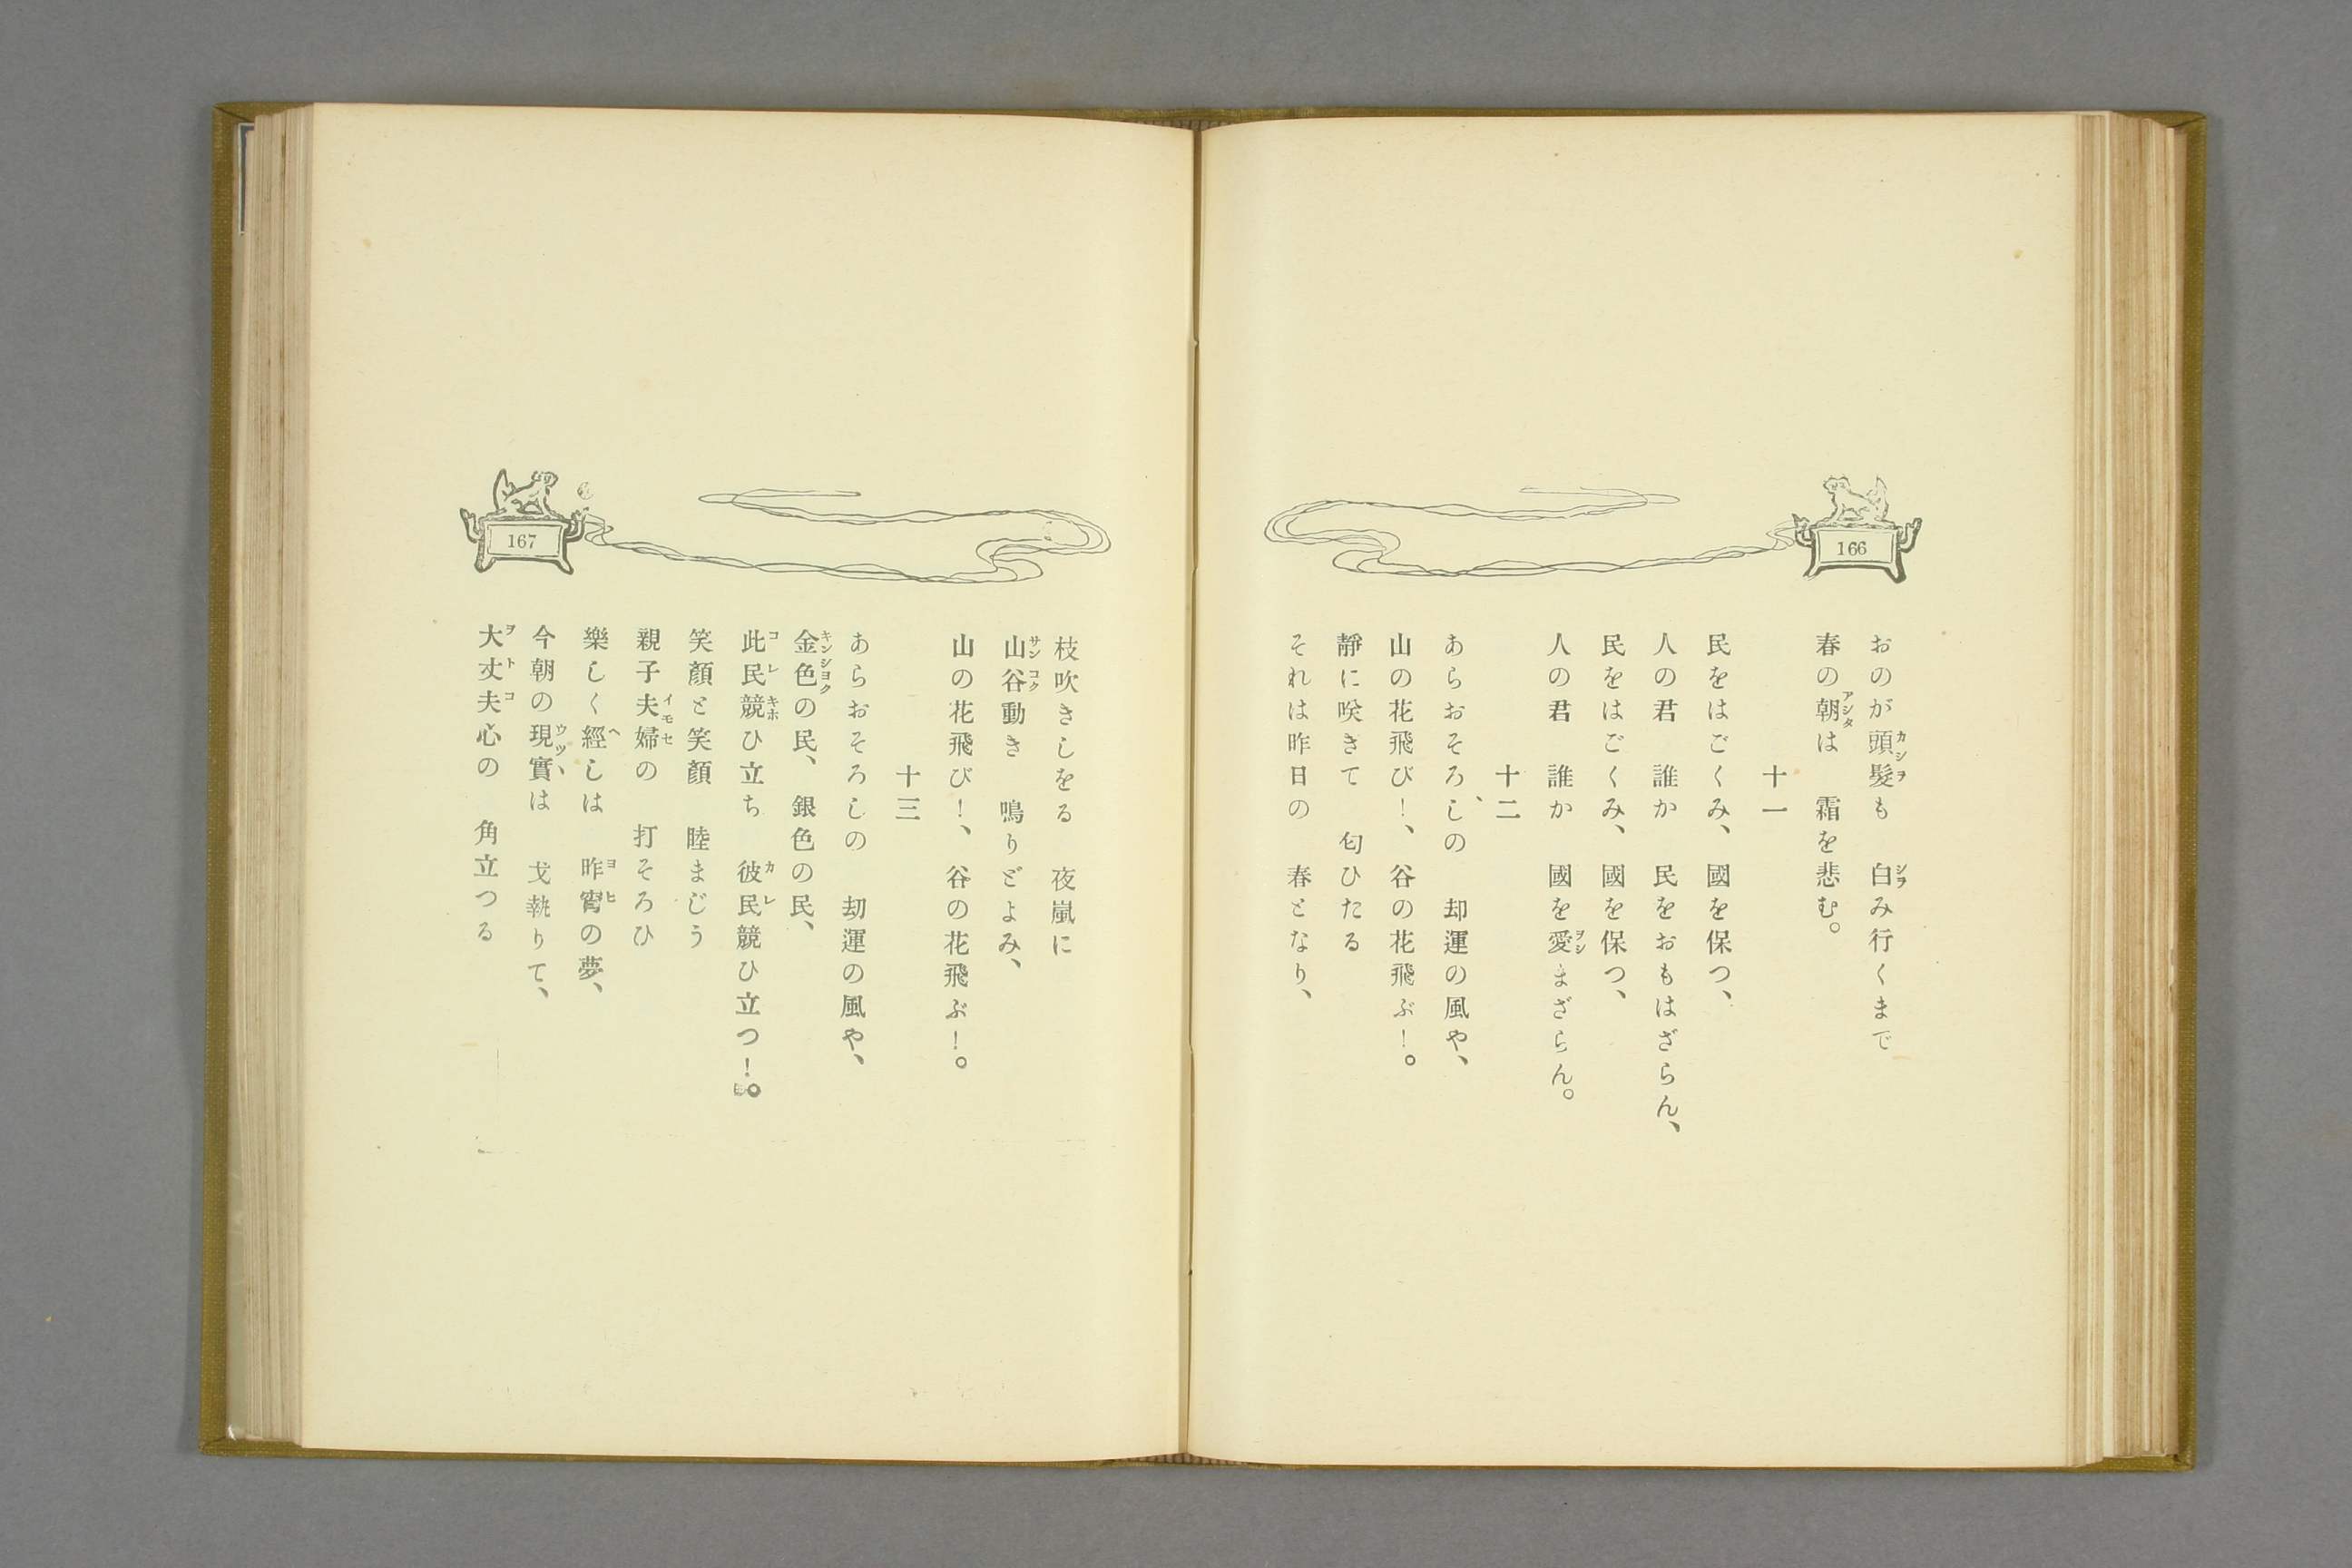 166
おのが頭髮も　白み行くまで
春の朝は　霜を悲む。
十一
民をはごくみ、國を保つ、
人の君　誰か　民をおもはざらん、
民をはごくみ、國を保つ、
人の君　誰か　國を愛まざらん。
十二
あらおそろしの　却運の風や、
山の花飛び！、谷の花飛ぶ！。
靜に咲きて　匂ひたる
それは昨日の　春となり、
167
枝吹きしをる　夜嵐に
山谷動き　鳴りどよみ、
山の花飛び！、谷の花飛ぶ！。
十三
あらおそろしの　刧運の風や、
金色の民、銀色の民、
此民競ひ立ち　彼民競ひ立つ！。
笑顏と笑顏　睦まじう
親子夫婦の　打そろひ
樂しく經しは　昨宵の夢、
今朝の現實は　戈執りて、
大丈夫心の　角立つる